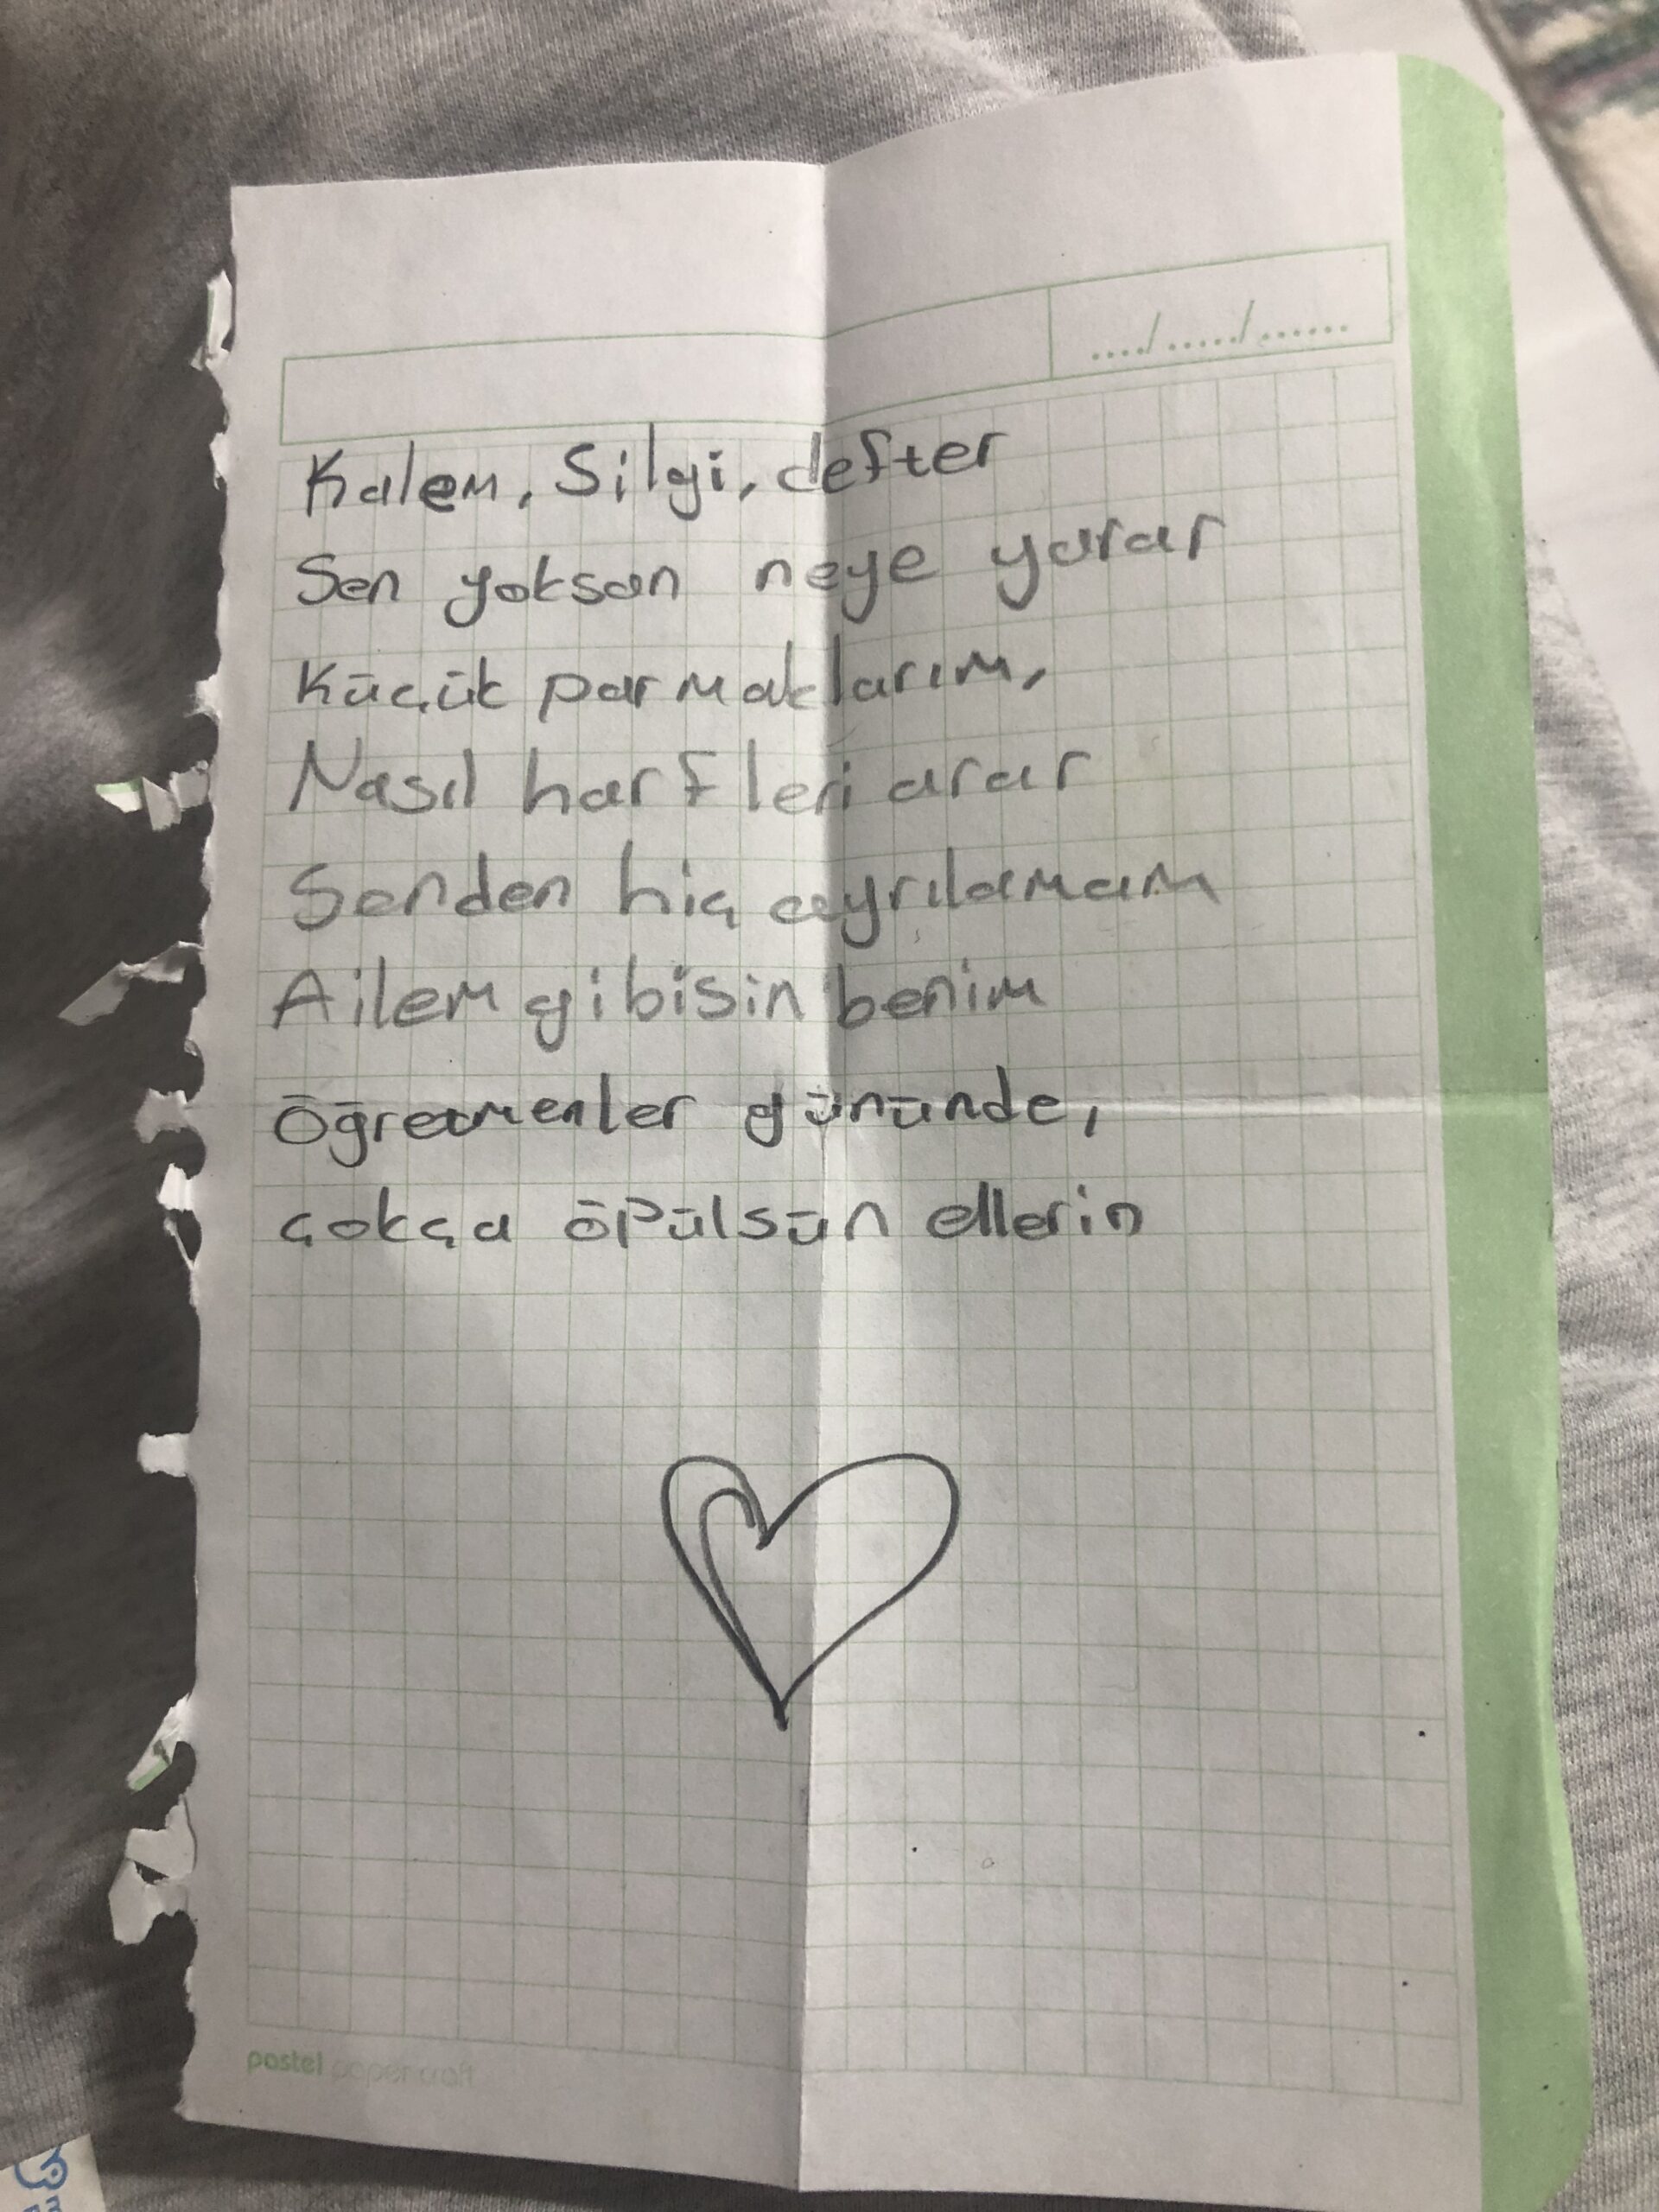 Kalem, Silgi, defter
Sen yoksan neye yarar
Küçük parmaklarım,
Nasıl harfleri arar
Senden hiç ayrılamam
Ailem gibisin benim
Öğretmenler gününde,
çokça öpülsün ellerin
pastel papercraft